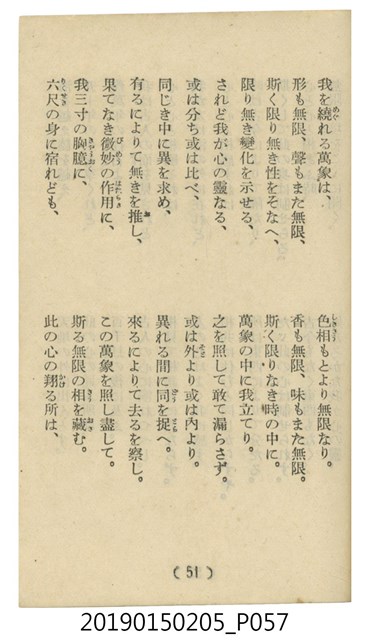 我を繞れる萬象は、
色相もとより無限なり。
形も無限、聲もまた無限、
香も無限、味もまた無限。
斯く限り無き性をそなへ、
斯く限りなき時の中に。
限り無き變化を示せる、
萬象の中に我立てり。
されど我が心の靈なる、
之を照して敢て漏らさず。
或は分ち或は比べ、
或は外より或は內より。
同じき中に異を求め、
異れる間に同を捉へ。
有るによりて無きを推し、
來るによりて去るを察し。
果てなき微妙の作用に、
この萬象を照し盡して。
我三寸の胸臆に、
斯る無限の相を藏む。
六尺の身に宿れども、
此の心の翔る所は、
(51)
20190150205_P057